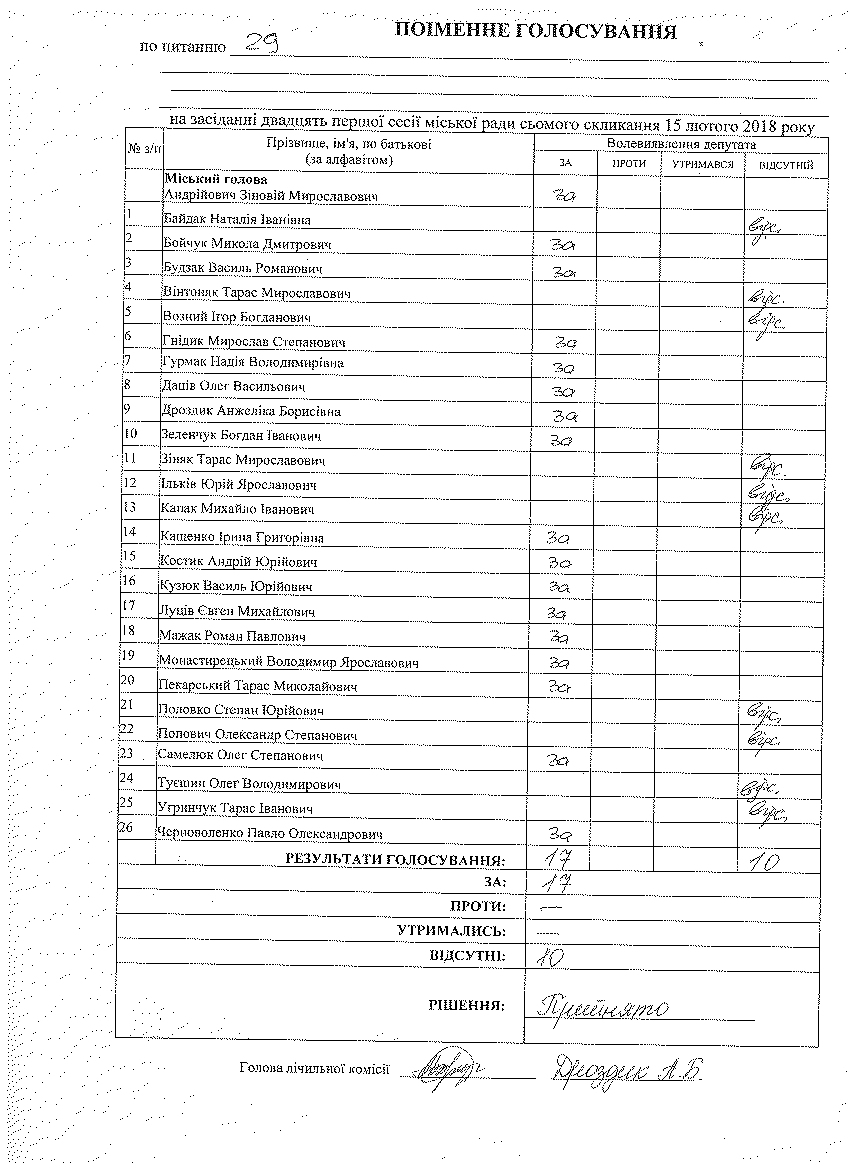 ПОІМЕННЕ ГОЛОСУВАННЯ
по питанню 29
на засіданні двадцять першої сесії міської ради сьомого скликання 15 лютого 2018 року
№ з/п Прізвище, ім'я, по батькові (за алфавітом) Волевиявлення депутата
ЗА ПРОТИ УТРИМАВСЯ ВІДСУТНІЙ
Міський голова
Андрійович Зіновій Мирославович за
1 Байдак Наталія Іванівна відс.
2 Бойчук Микола Дмитрович за
3 Будзак Василь Романович за
4 Вінтоняк Тарас Мирославович відс.
5 Возний Ігор Богданович відс.
6 Гнідик Мирослав Степанович за
7 Гурмак Надія Володимирівна за
8 Даців Олег Васильович за
9 Дроздик Анжеліка Борисівна за
10 Зеленчук Богдан Іванович за
11 Зіняк Тарас Мирославович відс.
12 Ільків Юрій Ярославович відс.
13 Капак Михайло Іванович відс.
14 Кащенко Ірина Григорівна за
15 Костик Андрій Юрійович за
16 Кузюк Василь Юрійович за
17 Луців Євген Михайлович за
18 Мажак Роман Павлович за
19 Монастирецький Володимир Ярославович за
20 Пекарський Тарас Миколайович за
21 Половко Степан Юрійович відс.
22 Попович Олександр Степанович відс.
23 Самелюк Олег Степанович за
24 Туєшин Олег Володимирович відс.
25 Угринчук Тарас Іванович відс.
26 Черноволенко Павло Олександрович за
РЕЗУЛЬТАТИ ГОЛОСУВАННЯ: 17 10
ЗА: 17
ПРОТИ: —
УТРИМАЛИСЬ: —
ВІДСУТНІ: 10
РІШЕННЯ: Прийнято
Голова лічильної комісії Дроздик А.Б.